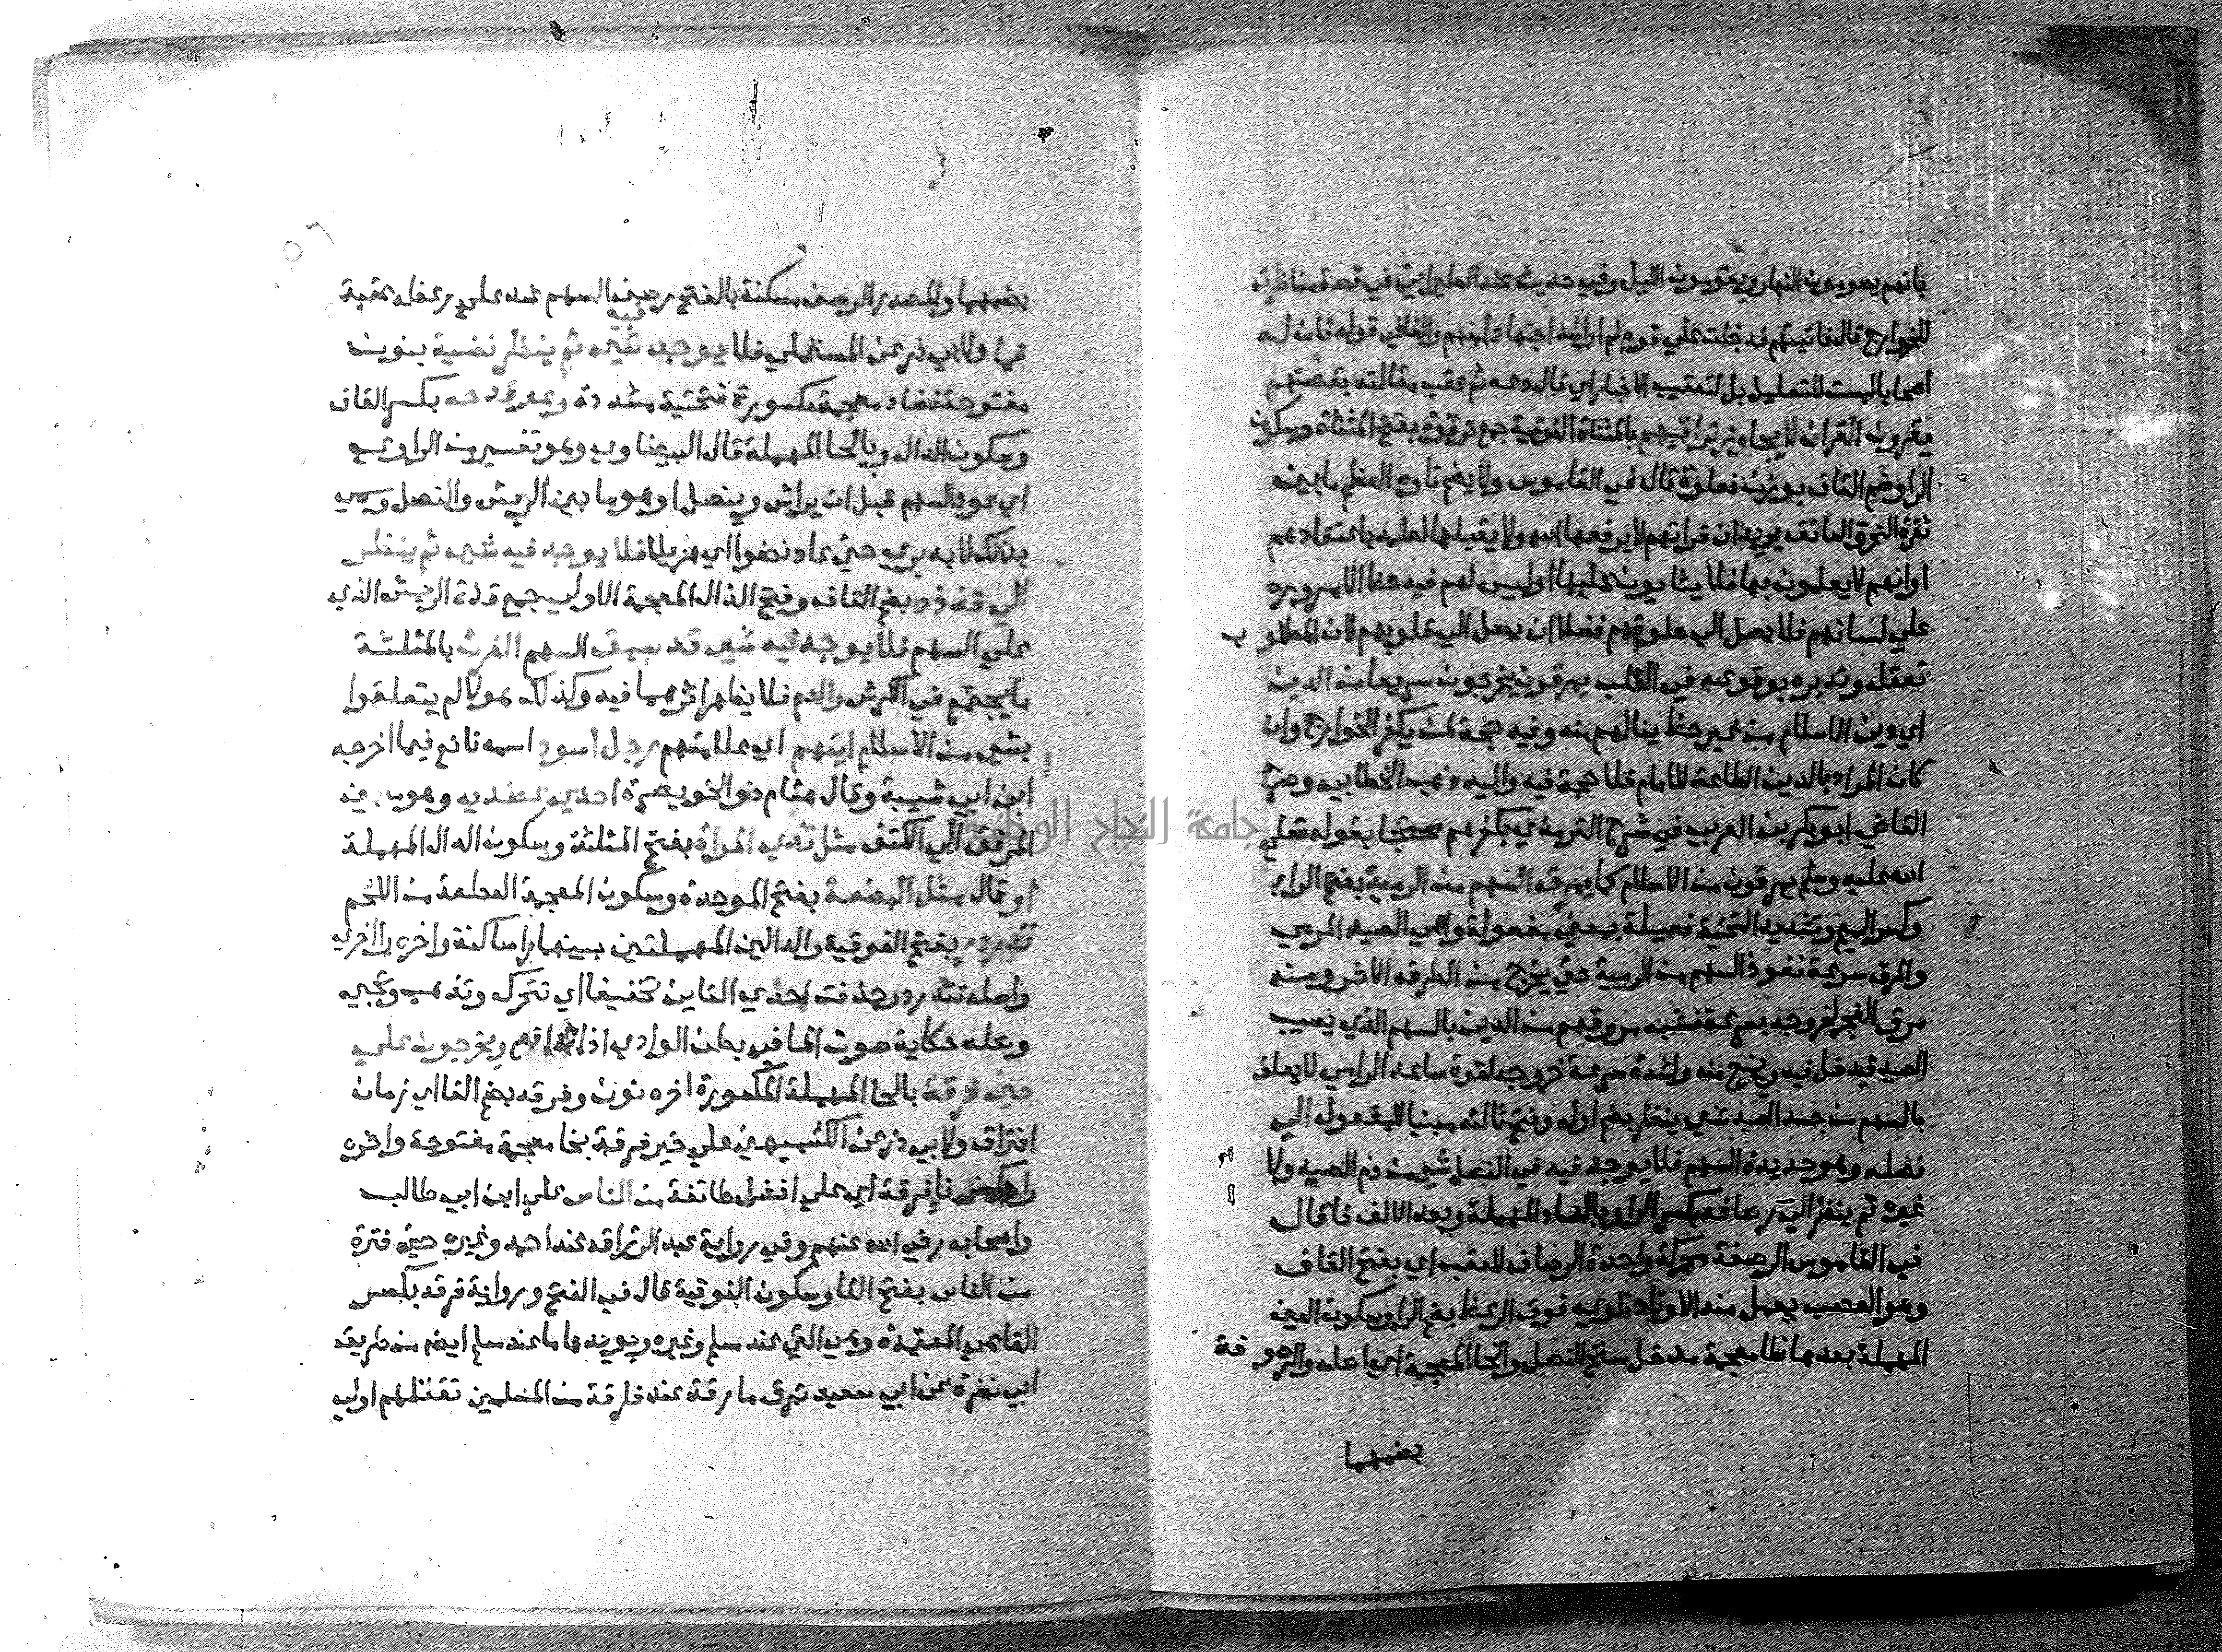 بانهم يصومون النهار ويقومون الليل وفي حديث عند الطبراني في قصة مناظرته
للخوارج قال فاتيتهم فدخلت علي قوم لم ار اشد اجتهادا منهم والفا في قوله فان له
اصحابا ليست للتعليل بل لتعقيب الاخبار اي قال دعه ثم عقب مقالته بقصتهم
يقرون القران لا يجاوز تراقيهم بالمثناة الفوقية جمع ترقوة بفتح المثناة وسكون
الرا وضم القاف بوزن فعلوة قال في القاموس ولا يضم تاوه العظم ما بين
ثغرة النحر والعاتق يريد ان قراتهم لا يرفعها الله ولا يقبلها لعلمه باعتقادهم
او انهم لا يعملون بها فلا يثابون عليها او ليس لهم فيه حظ الا مروره
علي لسانهم فلا يصل الي حلوقهم فضلا ان يصل الي قلوبهم لان المطلوب
تعقله وتدبره بوقوعه في القلب يمرقون يخرجون سريعا من الدين
اي دين الاسلام من غير حظ ينالهم منه وفيه حجة لمن يكفر الخوارج وان
كان المراد بالدين الطاعة للامام فلا حجة فيه واليه ذهب الخطابي وصرح
القاضي ابو بكر بن العربي في شرح الترمذي بكفرهم محتجا بقوله صلي
الله عليه وسلم يمرقون من الاسلام كما يمرق السهم من الرمية بفتح الراء
وكسر الميم وتشديد التحتية فعيلة بمعني مفعولة وهي الصيد المرمي
والمرق سرعة نفوذ السهم من الرمية حتي يخرج من الطرف الاخر ومنه
مرق الفجر لخروجه بسرعة فشبه مروقهم من الدين بالسهم الذي يصيب
الصيد فيدخل فيه ويخرج منه ولشدة سرعة خروجه لقوة ساعد الرامي لا يعلق
بالسهم من جسد الصيد شي ينظر بضم اوله وفتح ثالثه مبنيا للمفعول الي
نصله وهو حديدة السهم فلا يوجد فيه في النصل شي من دم الصيد ولا
غيره ثم ينظر الي رصافه بكسر الرا وبالصاد المهملة وبعد الالف فا قال
في القاموس الرصفة محركة واحدة الرصاف للعقب اي بفتح القاف
وهو العصب يعمل منه الاوتار تلوي فوق الرعظ بضم الرا وسكون العين
المهملة بعدها ظا معجمة مدخل سنخ النصل والخا المعجمة اي اصله والرصوفة
بضمهما
بضمهما والمصدر الرصف مسكنة بالفتح رصف السهم شد علي رعظه عقبة
فما ولابي ذر عن المستملي فلا يوجد فيه شي ثم ينظر نضية بنون
مفتوحة فضاد معجمة مكسورة فتحتية مشددة وهو قدحه بكسر القاف
وسكون الدال وبالحا المهملة قال البيضاوي وهو تفسير من الراوي
اي عود السهم قبل ان يراش وينصل او هو ما بين الريش والنصل وسمي
بذلك لانه بري حتي عاد نضوا اي هزيلا فلا يوجد فيه شي ثم ينظر
الي قذذه بضم القاف وفتح الذال المعجمة الاولي جمع قذة الريش الذي
علي السهم فلا يوجد فيه شي قد سبق السهم الفرث بالمثلثة
ما يجتمع في الكرش والدم فلا يظهر اثرهما فيه وكذلك هولا لم يتعلقوا
بشي من الاسلام ايتهم اي علامتهم رجل اسود اسمه نافع فيما اخرجه
ابن ابي شيبة وقال هشام ذو الخويصرة احدي عضديه وهو من
المرفق الي الكتف مثل ثدي المراة بفتح المثلثة وسكون الدال المهملة
او قال مثل البضعة بفتح الموحدة وسكون المعجمة القطعة من اللحم
تدردر بفتح الفوقية والدالين المهملتين بينهما را ساكنة واخره را اخري
واصله تتدردر حذفت احدي التاين تخفيفا اي تتحرك وتذهب وتجي
واصله حكاية صوت الما في بطن الوادي اذا تدافع ويخرجون علي
حين فرقة بالحا المهملة المكسورة اخره نون وفرقة بضم الفا اي زمان
افتراق ولابي ذر عن الكشميهني علي خير فرقة بخا معجمة مفتوحة واخره
را وكسر فا فرقة اي علي افضل طائفة من الناس علي ابن ابي طالب
واصحابه رضي الله عنهم وفي رواية عبد الرزاق عند احمد وغيره حين فترة
من الناس بفتح الفا وسكون الفوقية قال في الفتح ورواية فرقة بكسر
الفا هي المعتمدة وهي التي عند مسلم وغيره ويويدها ما عند مسلم ايضا من طريق
ابي نضرة عن ابي سعيد تمرق مارقة عند فرقة من المسلمين تقتلهم اولي
جامعة النجاح الوطنية